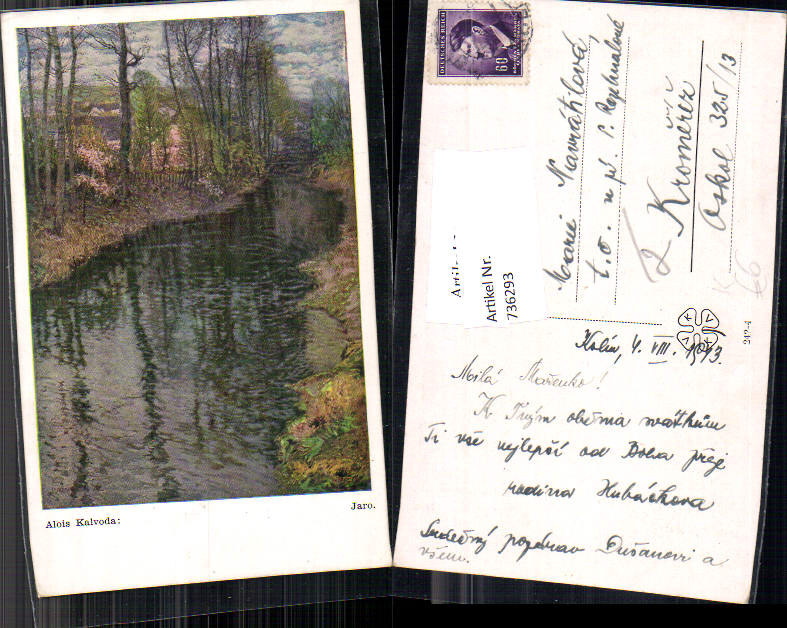 Alois Kalvoda:
Jaro.
DEUTSCHES REICH
60
Artikel Nr.
736293
Marie Navrátilová,
t. č. u p.
Kroměříž
Oskol 325/13
242-4
Kolín, 4. VIII. 1943.
Milá Mařenko!
K Tvým oběma svátkům
Ti vše nejlepší od Boha přeje
rodina Hubáčkova
Srdečný pozdrav Dušanovi a
všem.